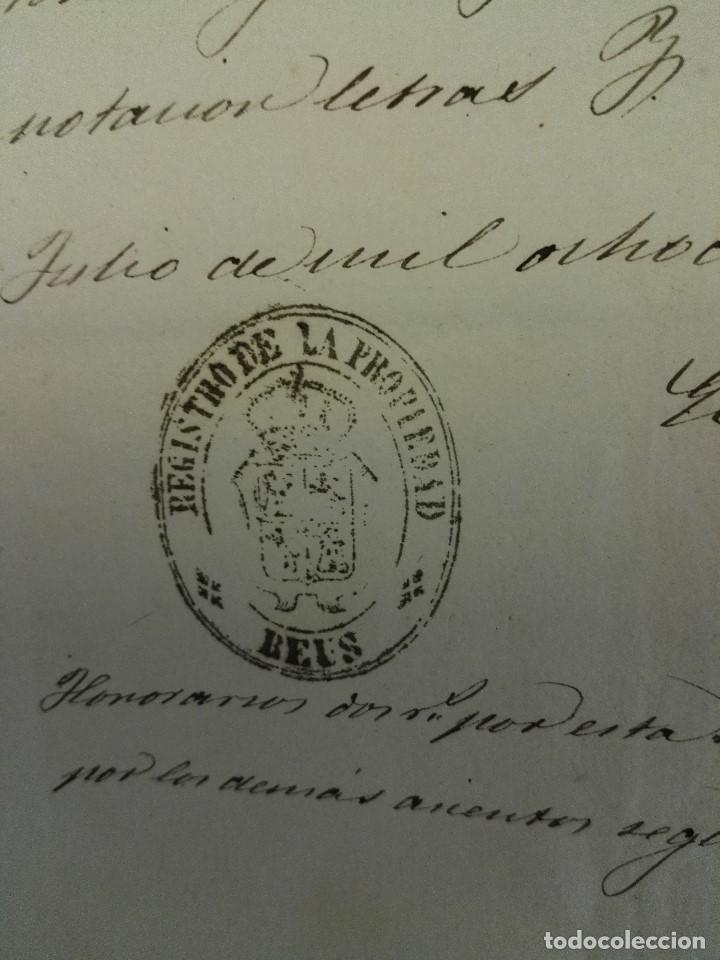 notacion letras
Julio de mil ochoc
REGISTRO DE LA PROPIEDAD
REUS
Honorarios dos r.s por esta
por los demás asientos seg
todocoleccion